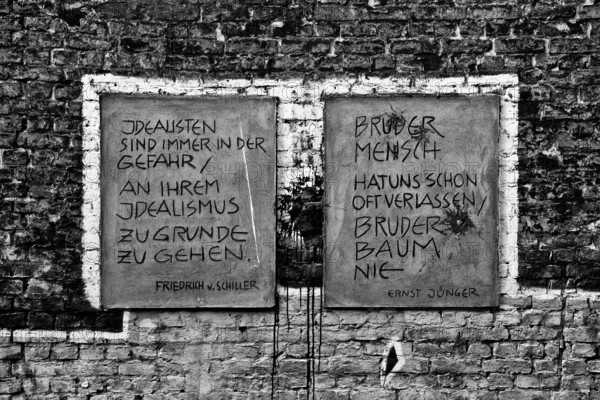 JDEALISTEN
SIND IMMER IN DER
GEFAHR/
AN IHREM
JDEALISMUS
ZU GRUNDE
ZU GEHEN.
FRIEDRICH v. SCHILLER
BRUDER
MENSCH
HAT UNS SCHON
OFT VERLASSEN/
BRUDER
BAUM
NIE
ERNST JÜNGER